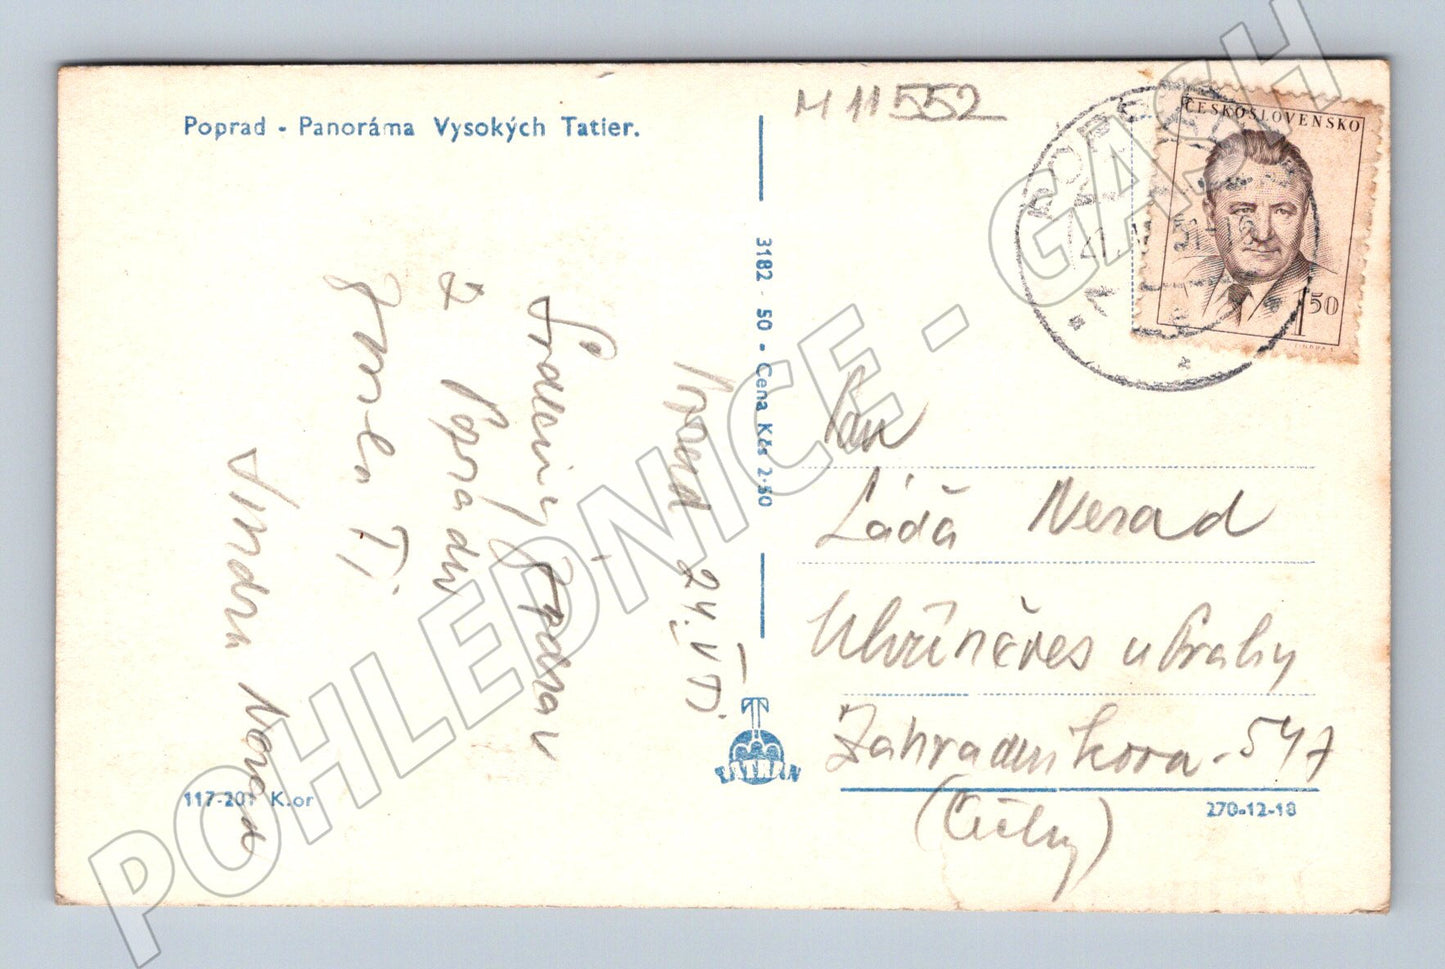 Poprad - Panoráma Vysokých Tatier.
M 11552
ČESKOSLOVENSKO
1 50
3182 - 50 - Cena Kčs 2·50
Poprad 24. VI.
Srdečný pozdrav
z Popradu
posílá Ti
Jindra
Pan
Láďa Nerad
Uhříněves u Prahy
Zahradníkova - 547
(Čechy)
TATRAN
117-201 K.or
270-12-18
POHLEDNICE - GASH